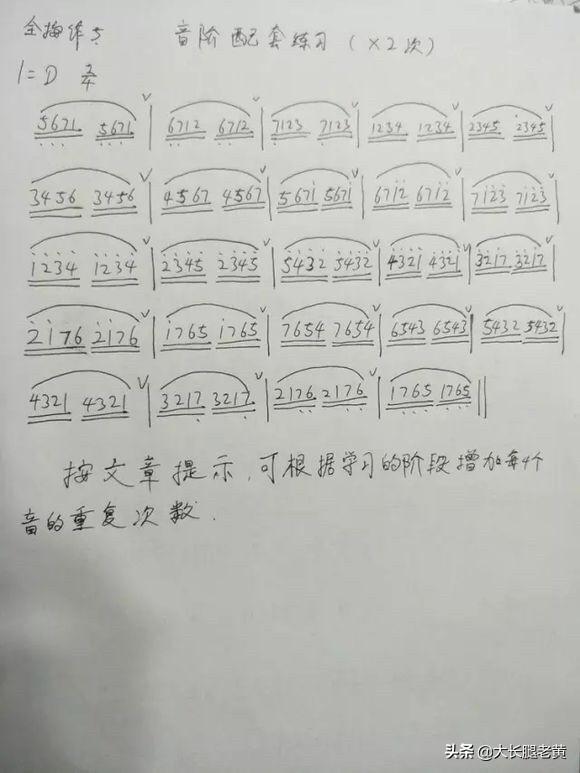 全按作5 音阶配套练习(×2次)
1=D 2/4
5671 5671 | 6712 6712 | 7123 7123 | 1234 1234 | 2345 2345 |
3456 3456 | 4567 4567 | 5671̇ 5671̇ | 671̇2̇ 671̇2̇ | 71̇2̇3̇ 71̇2̇3̇ |
1̇2̇3̇4̇ 1̇2̇3̇4̇ | 2̇3̇4̇5̇ 2̇3̇4̇5̇ | 5̇4̇3̇2̇ 5̇4̇3̇2̇ | 4̇3̇2̇1̇ 4̇3̇2̇1̇ | 3̇2̇1̇7 3̇2̇1̇7 |
2̇1̇76 2̇1̇76 | 1̇765 1̇765 | 7654 7654 | 6543 6543 | 5432 5432 |
4321 4321 | 3217̣ 3217̣ | 217̣6̣ 217̣6̣ | 17̣6̣5̣ 17̣6̣5̣ ||
按文章提示,可根据学习的阶段增加每4个
音的重复次数.
头条 @大长腿老黄